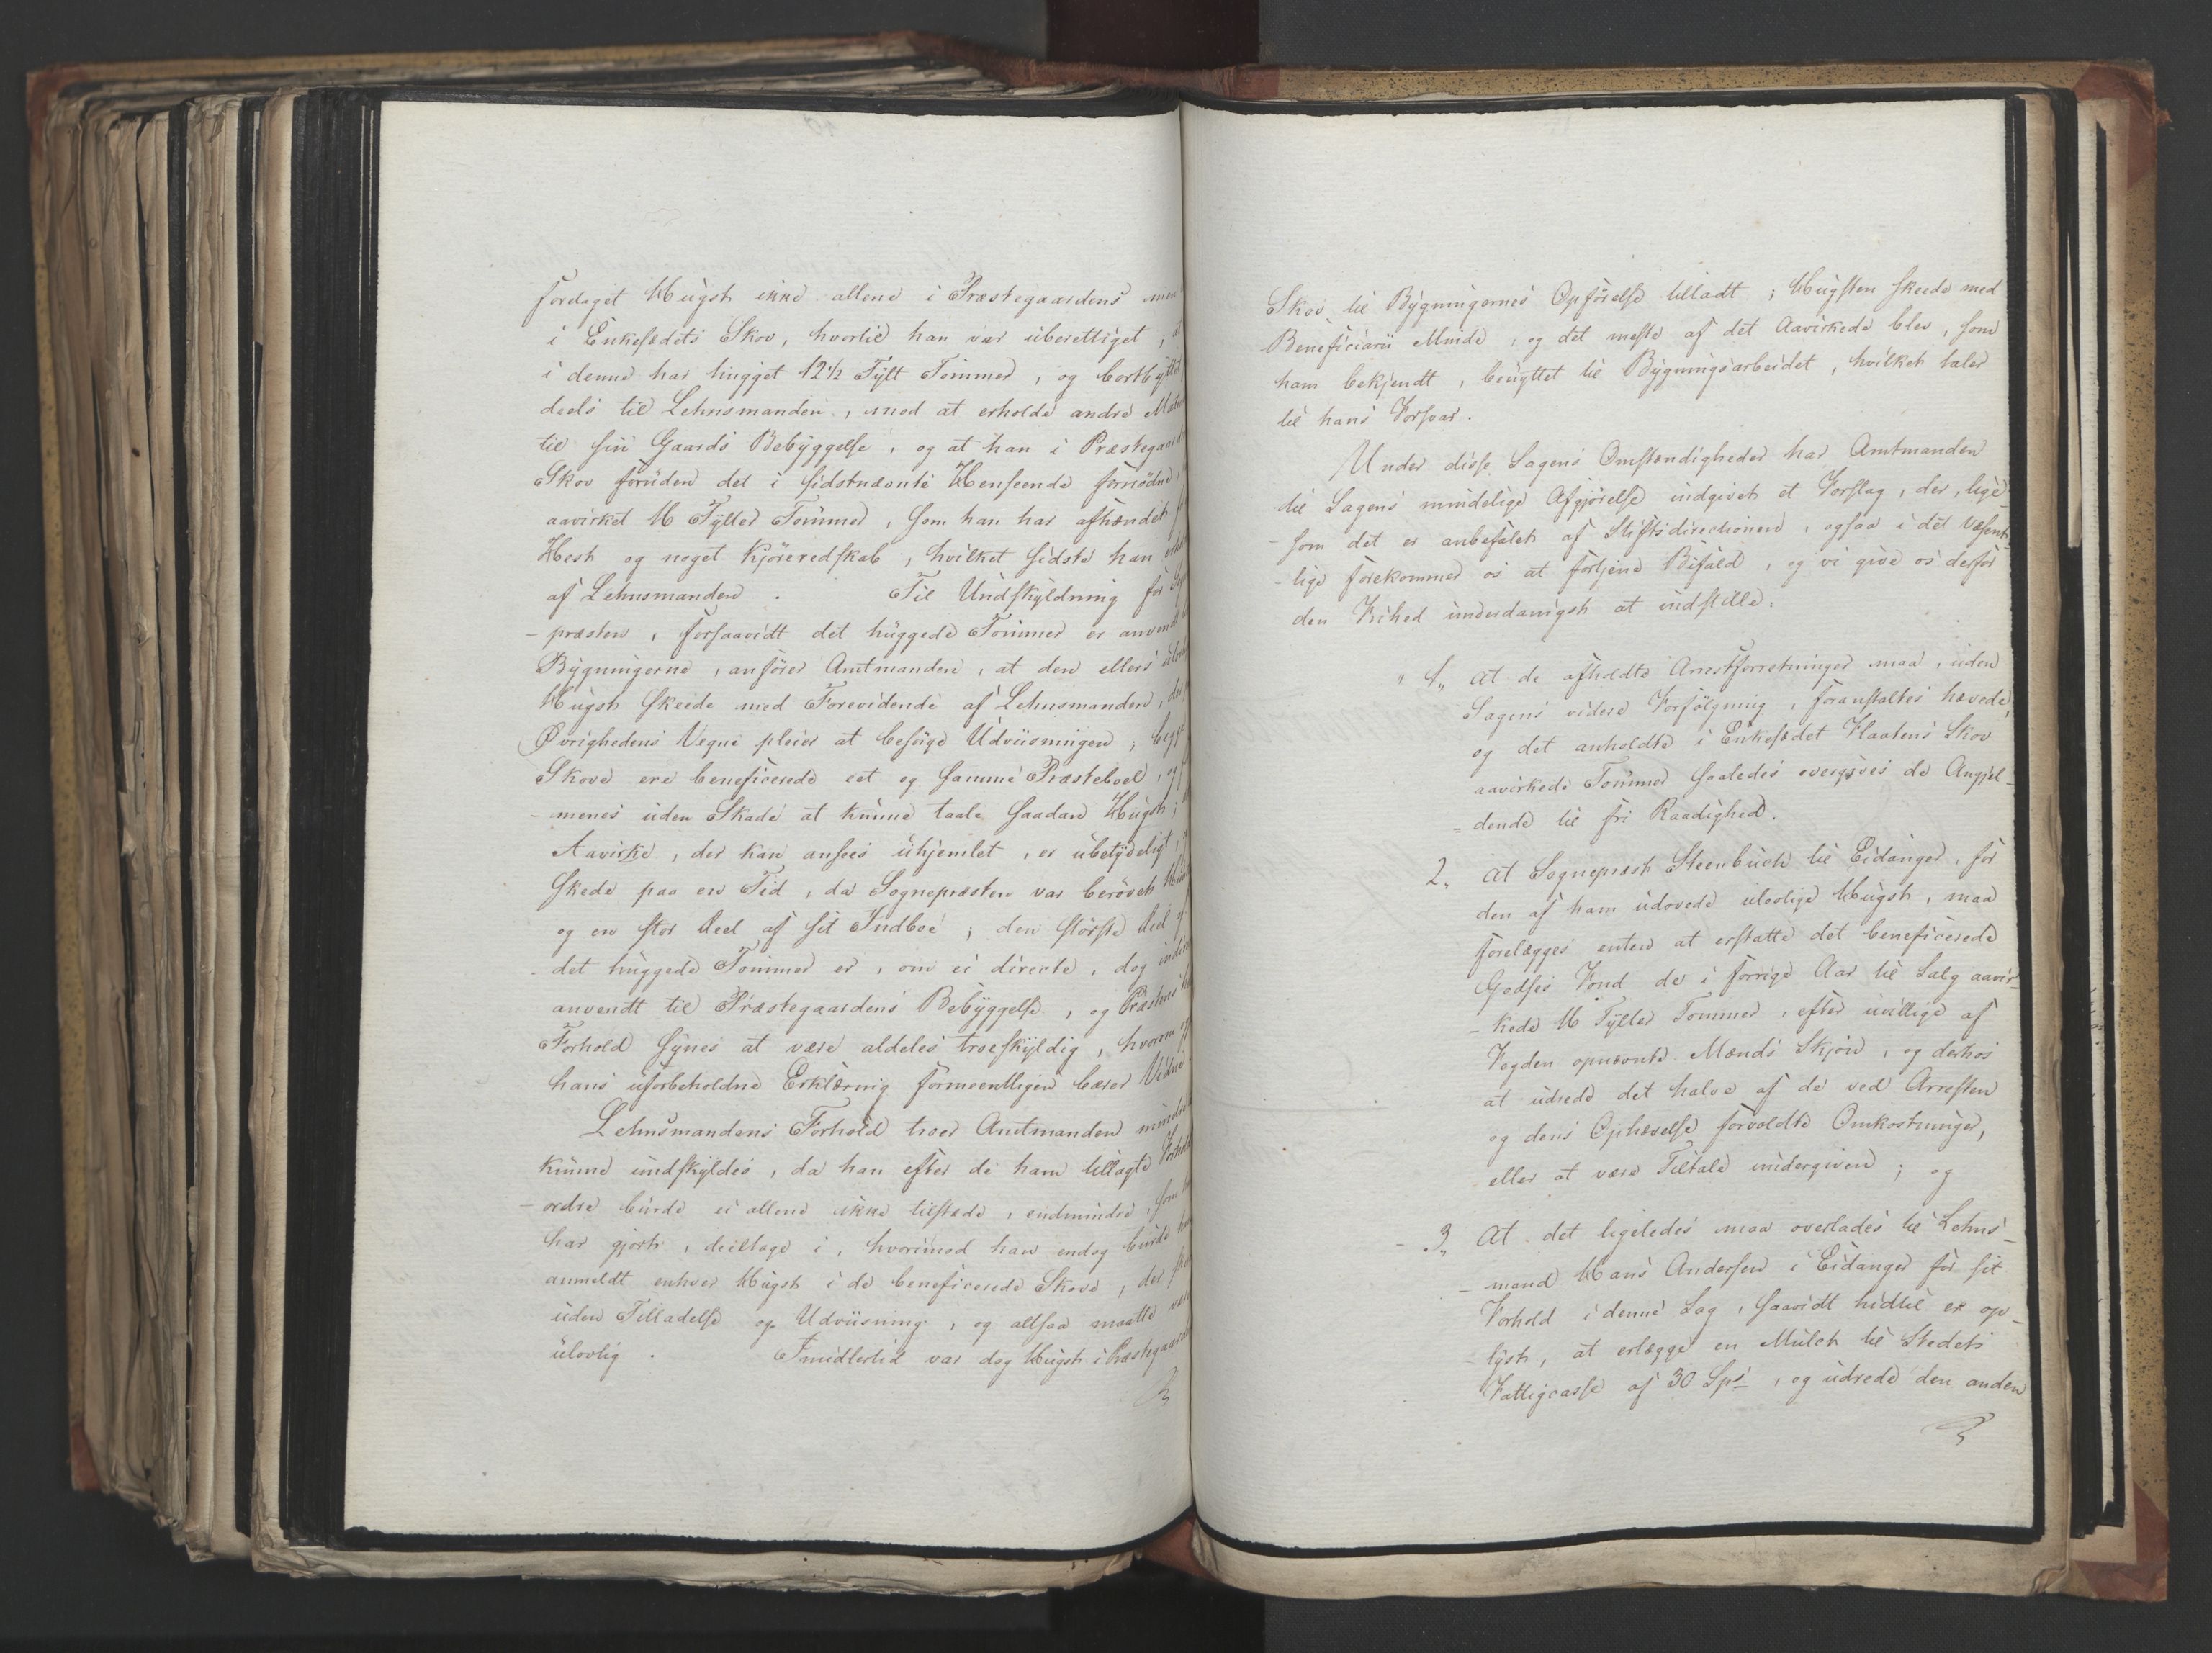 foretaget Hugst ikke allene i Præstegaardens men
i Enkesædets Skov, hvortil han var uberettiget;
i denne har hugget 12 1/2 Tylt Tømmer, og bortbyttet
deels til Lehnsmanden, mod at erholde andre
til sin Gaards Bebyggelse, og at han i
Skov foruden det i sidstnævnte Henseende fornødne,
avirket 16 Tylter Tømmer, som han har afhændet
Hest og noget Kjøreredskab, hvilket sidste han
af Lehnsmanden. Til Undskyldning for
-præsten, forsaavidt det huggede Tømmer er anvendt
Bygningerne, anfører Amtmanden, at den ellers
Hugst skeede med Forevidende af Lehnsmanden,
Øvrighedens Vegne pleier at besørge Udviisningen; begge
Skove ere beneficerede eet og samme Præsteboel,
-menes uden Skade at kunne taale saadan Hugst;
Aavirke, der kan ansees uhjemlet, er ubetydeligt,
skede paa en Tid, da Sognepræsten var berøvet
og en stor Deel af sit Indboe; den største Deel af
det huggede Tømmer er, om ei directe, dog
anvendt til Præstegaardens Bebyggelse, og Præstens
Forhold synes at være aldeles troeskyldig, hvorom
hans uforbeholdne Erklærnig formeentligen bærer Vidne
Lehnsmandens Forhold troer Amtmanden mindre
kunne undskyldes, da han efter de ham tillagte
-ordre burde ei allene ikke tilstede, endmindre, som
har gjort, deeltage i, hvorimod han endog burde
anmeldt enhver Hugst i de beneficerede Skove, der
uden Tilladelse og Udviisning, og altsaa maatte være
ulovlig. Imidlertid var dog Hugst i
Skov til Bygningernes Opførelse tilladt; Hugsten skeede med
Beneficiarii Minde, og det meste af det Aavirkede blev, som
ham bekjendt, benyttet til Bygningsarbeidet, hvilket taler
til hans Forsvar.
Under disse Sagens Omstændigheder har Amtmanden
til Sagens mindelige Afgjørelse indgivet et Forslag, der, lige-
-som det er anbefalet af Stiftsdirectionen, ogsaa i det Væsent-
-lige forekommer os at fortjene Bifald, og vi give os derfor
den Frihed underdanigst at indstille:
" 1,, at de afholdte Arrestforretninger maa, uden
Sagens videre Forfølgning, foranstaltes hævede,
og det anholdte i Enkesædet Flaatens Skov
aavirkede Tømmer saaledes overgives de Angjel-
=dende til fri Raadighed.
2,, at Sognepræst Steenbuch til Eidanger, for
den af ham udøvede ulovlige Hugst, maa
forelægges enten at erstatte det beneficerede
Godses Fond de i forrige Aar til Salg aavir-
-kede 16 Tylter Tømmer, efter uvillige af
Fogden opnævnte Mænds Skjøn, og derhos
at udrede det halve af de ved Arresten
og dens Ophævelse forvoldte Omkostninger,
eller at være Tiltale undergiven; og
- 3,, At det ligeledes maa overlades til Lehns-
-mand Hans Andersen i Eidanger for sit
Forhold i denne Sag, saavidt hidtil er op-
lyst, at erlægge en Mulct til Stedets
Fattigcasse af 30 Spd, og udrede den anden